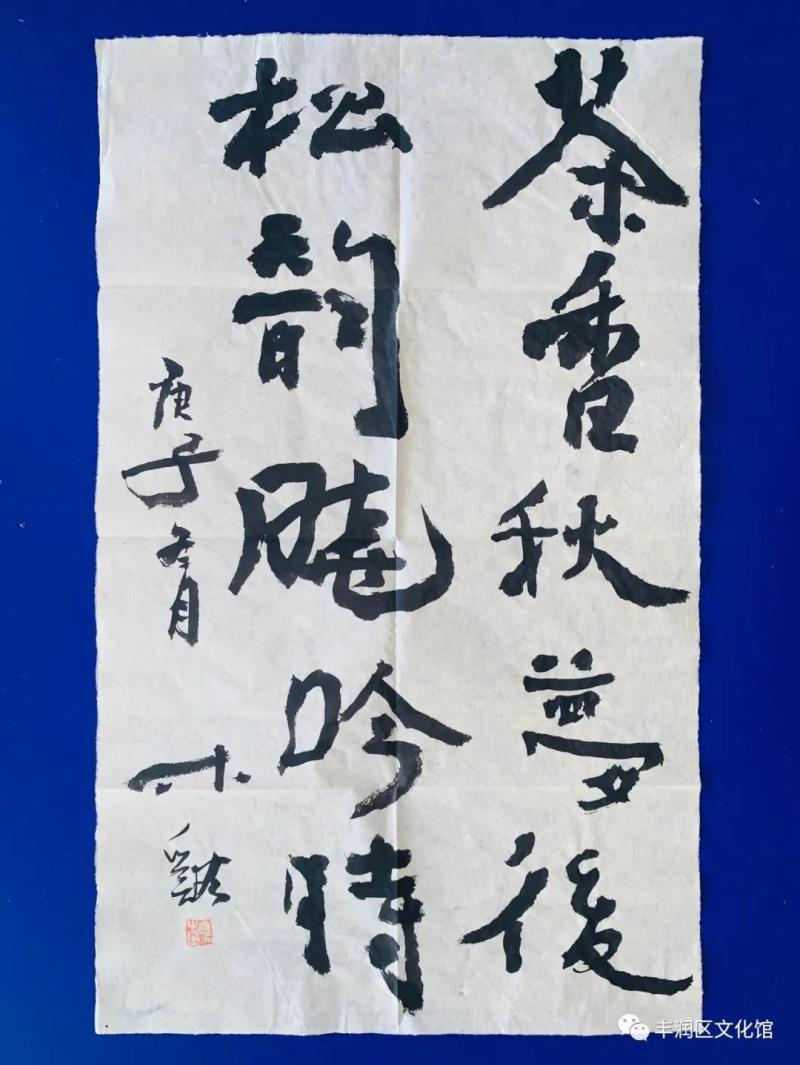 茶香秋夢後
松韵晚吟時
庚子冬月
丰润区文化馆